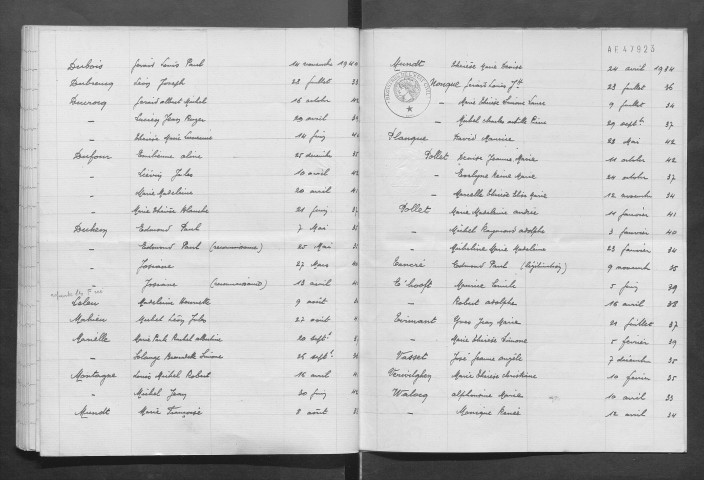 Dubois Gérard Louis Paul 14 novembre 1940
Dubreucq Léon Joseph 23 juillet 33
Ducrocq Gérard Albert Michel 16 octobre 42
" Jean Roger 20 avril 34
" Thérèse Marie 14 juin 42
Dufour Emilienne Aline 25 décembre 35
" Liévin Jules 10 avril 42
" Marie Madeleine 20 avril
" Marie Thérèse Blanche 21 juin 37
Edmond Paul 7 Mai 35
" Edmond Paul (reconnaissance) 25 Mai 35
" Josiane 27 Mars 40
" Josiane (reconnaissance) 13 avril
Leleu Madeleine 9 août
Mahieu Michel Léon Jules 27 août
Marielle Marie Paule 20 sept
" Solange Bernadette 26 sept. 36
Montagne Louis Michel Robert 16 avril
" Michel Jean 30 juin 42
Mundt Marie Françoise 8 août
AE47925
Mundt Thérèse Marie Louise 24 avril 1934
Nonque Gérard Louis Jh 23 juillet 36
" Marie Thérèse 9 juillet 34
" Michel Charles Achille 29 septb 37
Planque David Maurice 23 Mai 42
Pollet Louise Jeanne Marie 11 octobre 42
" Evelyne Reine Marie 24 octobre 37
" Marcelle Thérèse Marie 12 novembre 34
Pollet Marie Madeleine Andrée 11 janvier 41
" Michel Raymond Adolphe 3 janvier 40
" Micheline Marie Madeleine 23 janvier 34
Tancré Edmond Paul (légitimation) 9 novembre 35
T'hooft Maurice Emile 5 juin 39
" Robert Adolphe 16 avril 38
Yves Jean Marie 21 juillet 37
" Marie Thérèse Simone 5 février 39
Vaisset José Jeanne Angèle 7 décembre 35
Verwilghen Marie Thérèse Christiane 10 février 35
Walocq Alphonsine Marie 10 avril 33
" Monique Renée 12 avril 34